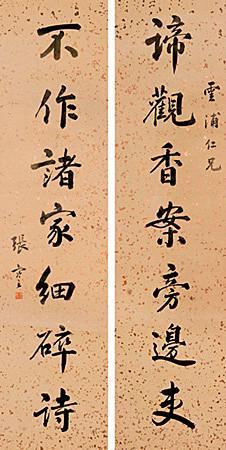 諦觀香案旁邊吏
雲浦仁兄
不作諸家細碎詩
張謇